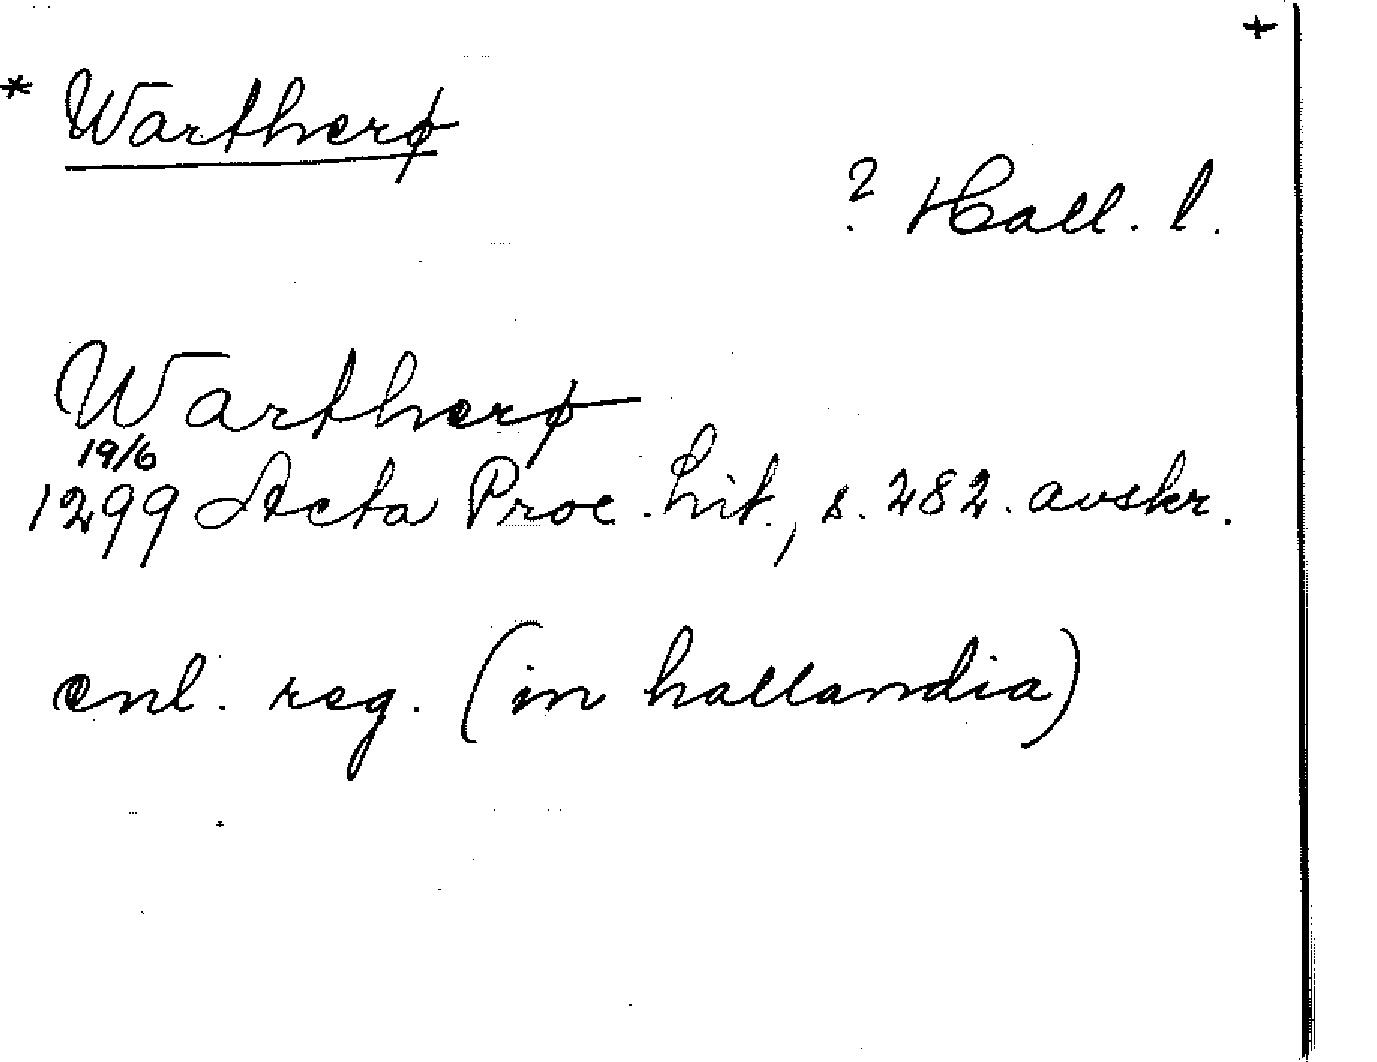 +
* Wartherø
? Hall. l.
Wartherø
19/6
1299 Acta Proc. Lit., s. 282. avskr.
enl. reg. (in hallandia)